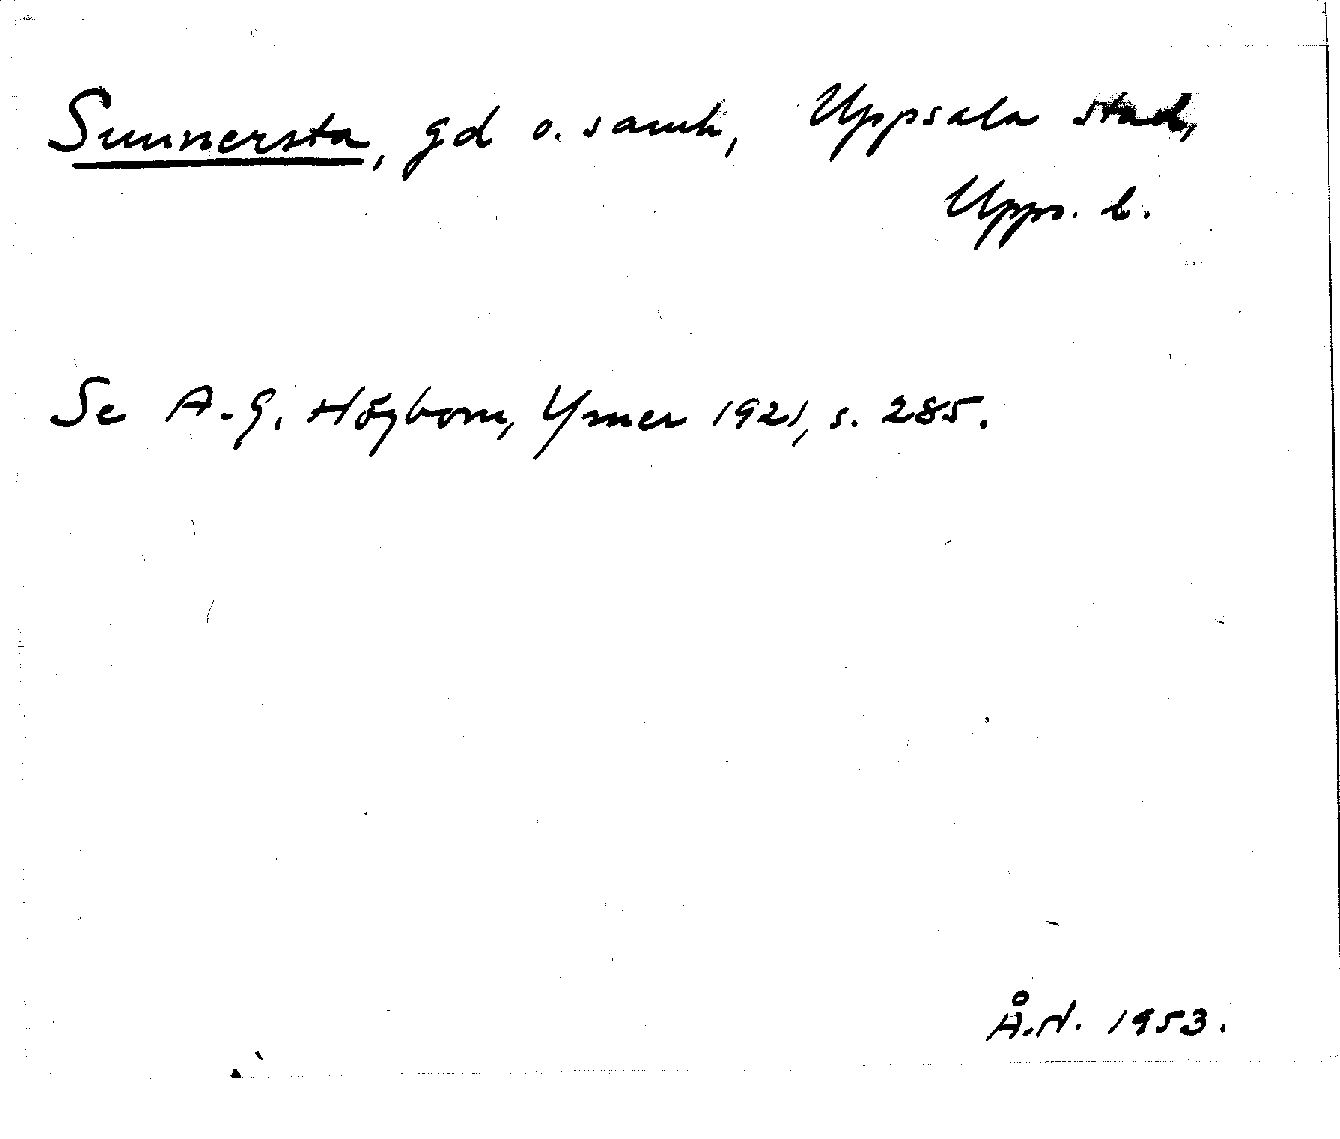 Sunnersta, gd o. samh, Uppsala stad,
Upps. l.
Se A.G. Högbom, Ymer 1921, s. 285.
Å.N. 1953.